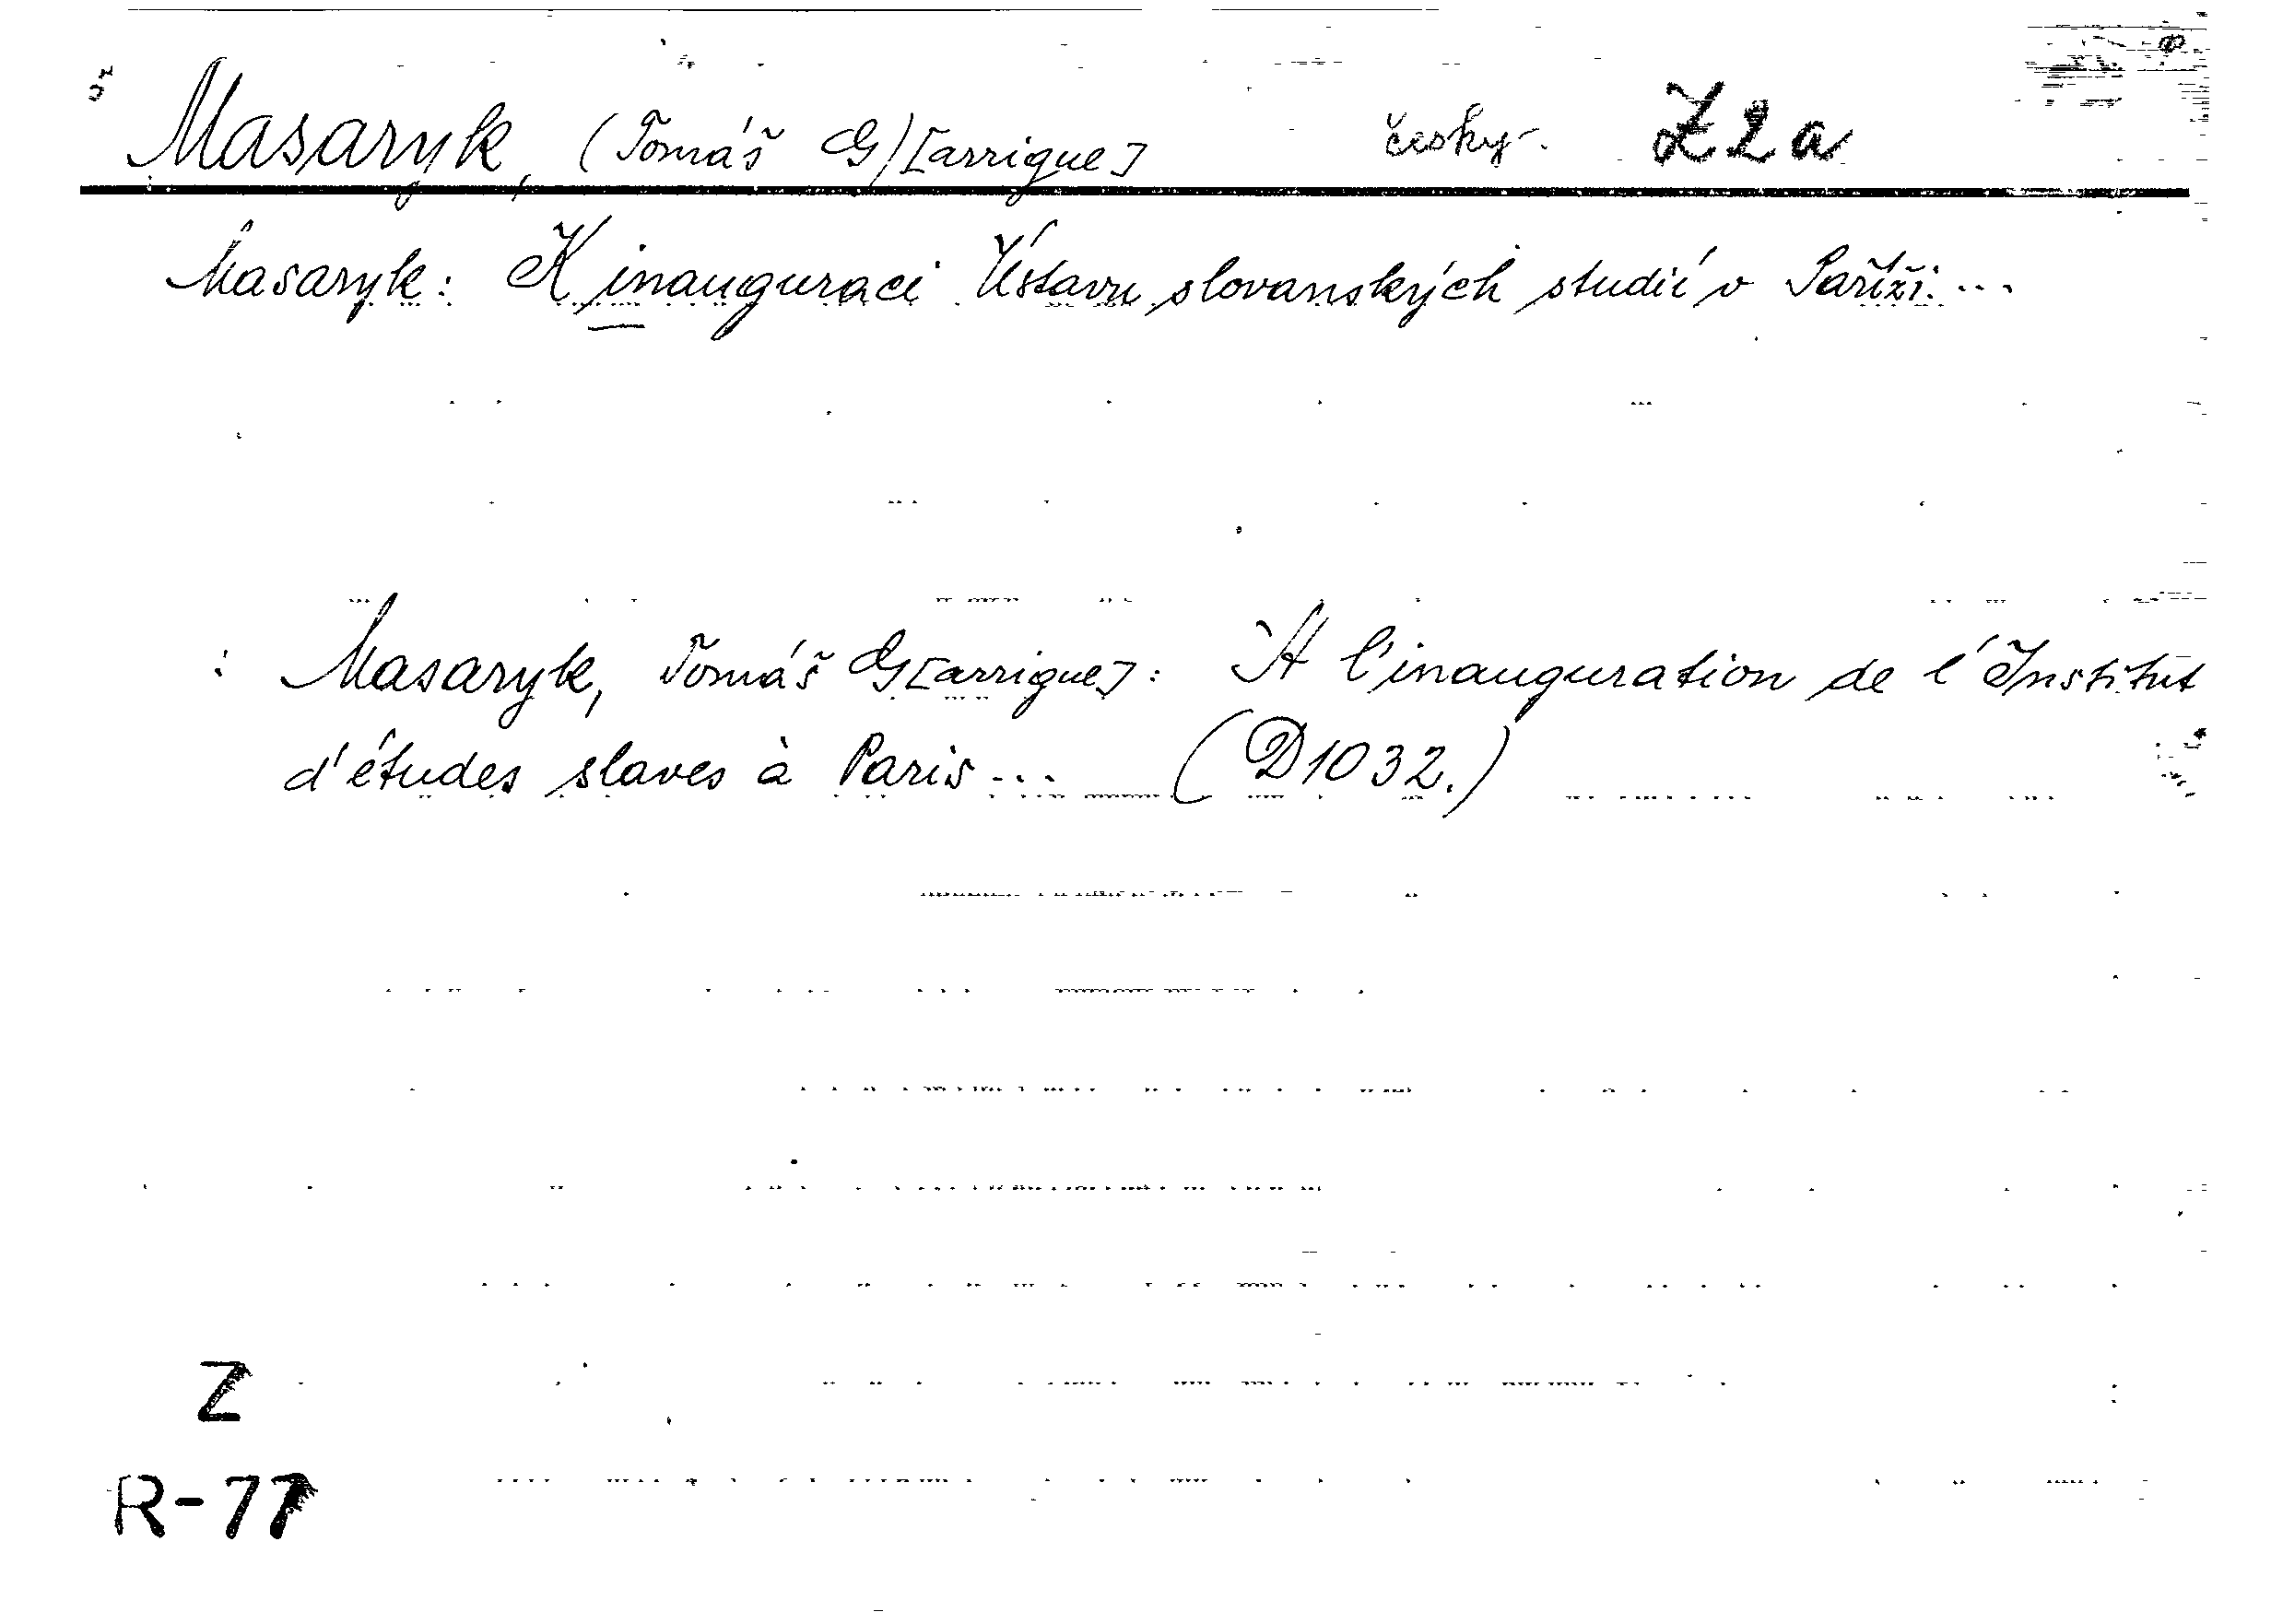 Masaryk, (Tomáš G)[arrigue] česky. Z2a
Masaryk: K inauguraci Ústavu slovanských studií v Paříži...
: Masaryk, Tomáš G[arrigue]: A l'inauguration de l'Institut
d'études slaves à Paris... (D1032.)
Z
R-77